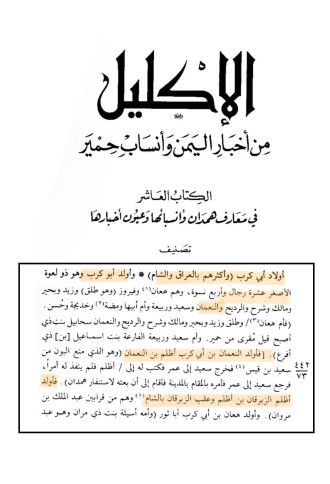 الإكليل
من أخبار اليمن وأنساب حمير
الكتاب العاشر
في معارف همدان وأنسابها وعيون أخبارها
تصنيف
أولاد أبي كرب (وأكثرهم بالعراق والشام) * وأولد أبو كرب وهو ذو لعوة
الأصغر عشرة رجال وأربع نسوة، وهم هعان(١) وفيروز (وهو طلق) وزيد وبحير
ومالك وشرح والرديح والنعمان وسعيد وربيعة وأم أبيها ومضة(٢) وخديجة وحُسن.
(فأم هعان(٣)/ وطلق وزيد وبحير ومالك وشرح والرديح والنعمان سحابيل بنت ذي
أصبح قيل مُقرى من حمير. وأم سعيد وربيعة الفارعة بنت اسماعيل [بن] ذي
أفرع). [فأولد النعمان بن أبي كرب أظلم بن النعمان (وهو الذي منع البون من
سعيد بن قيس(٤) فخرج سعيد إلى عمر فكتب له إلى / أظلم فلم ينفذ له أمراً،
فرجع سعيد إلى عمر فأمره بالمقام بالمدينة فأقام إلى أن بعثه لاستنفار همدان). فأولد
أظلم الزبرقان بن أظلم وعقب الزبرقان بالشام(٥) وهم من قرابين عبد الملك بن
مروان). وأولد هعان بن أبي كرب أبا ثور (وأمه أسيلة بنت ذي مران) وهو عبد
٤٤٢
٧٣